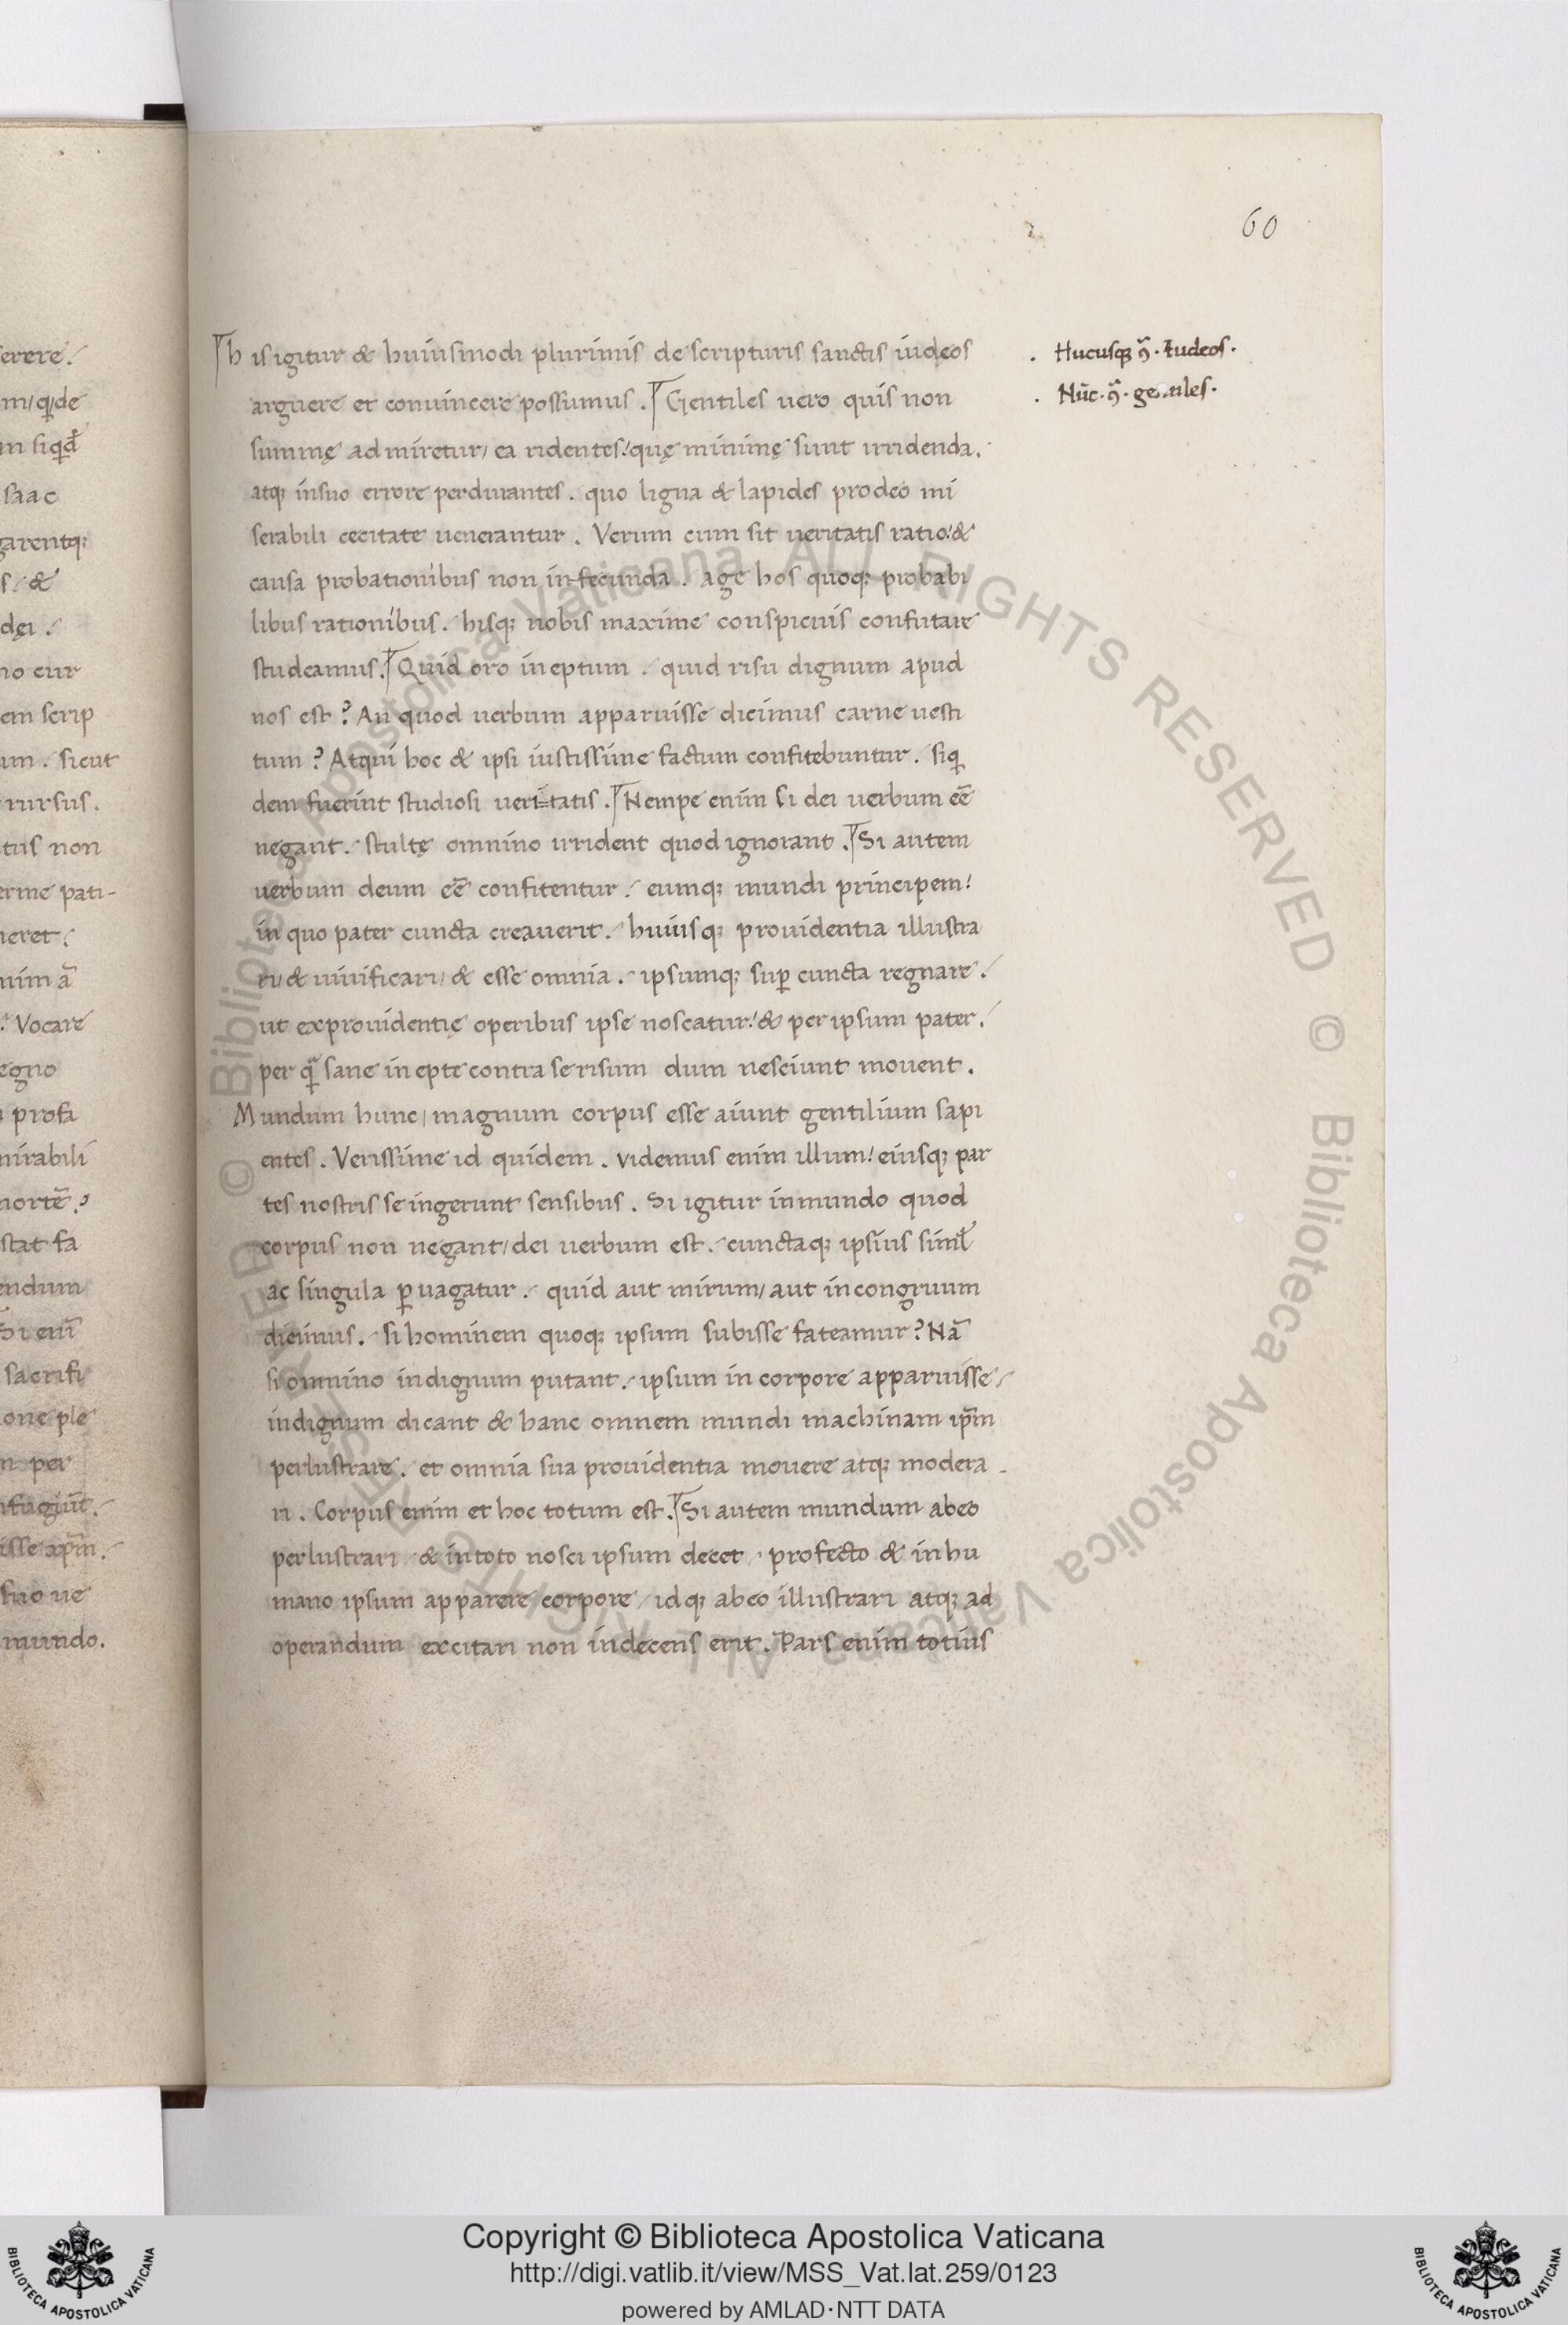 60
his igitur & huiusmodi plurimis de scripturis sanctis iudęos
. Hucusqꝫ ↄ̃. Iudeos.
arguere et conuincere possumus . Gentiles uero quis non
. Nūc. ↄ̃. gentiles.
summę admiretur / ea ridentes! quę minimę sunt irridenda.
atqꝫ insuo errore perdurantes . quo ligna & lapides prodeo mi
serabili cecitate uenerantur . Verum cum sit ueritatis ratio! &
causa probationibus non in-fecunda . age hos quoqꝫ probabi
libus rationibus. hisqꝫ nobis maxime conspicuis confutare
studeamus. Quid oro ineptum . quid risu dignum apud
nos est ? An quod uerbum apparuisse dicimus carne uesti
tum ? Atqui hoc & ipsi iustissime factum confitebuntur. siqi
dem fuerint studiosi ueritatis. Nempe enim si dei uerbum eē
negant. stultę omnino irrident quod ignorant. Si autem
uerbum deum eē confitentur. eumqꝫ mundi principem!
in quo pater cuncta creauerit. huiusqꝫ prouidentia illustra
ri / & uiuificari / & esse omnia . ipsumqꝫ sup̱ cuncta regnare.
ut exprouidentię operibus ipse noscatur! & per ipsum pater.
per qͣ sane inepte contra se risum dum nesciunt mouent.
Mundum hunc / magnum corpus esse aiunt gentilium sapi
entes . Verissime id quidem . videmus enim illum! eiusqꝫ par
tes nostris se ingerunt sensibus . Si igitur inmundo quod
corpus non negant / dei uerbum est. cunctaqꝫ ipsius simł
ac singula ꝑuagatur . quid aut mirum / aut incongruum
dicimus. si hominem quoqꝫ ipsum subisse fateamur ? Nā
si omnino indignum putant. ipsum in corpore apparuisse
indignum dicant & hanc omnem mundi machinam ip̄m
perlustrare. et omnia sua prouidentia mouere atqꝫ modera
ri . Corpus enim et hoc totum est. Si autem mundum abeo
perlustrari & intoto nosci ipsum decet . profecto & inhu
mano ipsum apparere corpore / idqꝫ abeo illustrari atqꝫ ad
operandum excitari non indecens erit. Pars enim totius
erere.
de
saac
garentqꝫ
& 
dęi .
no cur
em scrip
um . sicut
rursus.
tus non
erme pati-
neret
nim ā
Vocare
egno
profi
mirabili
mortē ?
stat fa
endum
Si enī
sacrifi
one ple
per
fugiūt.
isse xp̄m.
suo ue
mundo.
© Biblioteca Apostolica Vaticana ALL RIGHTS RESERVED © Biblioteca Apostolica Vaticana ALL RIGHTS RESERVED
Copyright © Biblioteca Apostolica Vaticana
http://digi.vatlib.it/view/MSS_Vat.lat.259/0123
powered by AMLAD·NTT DATA
BIBLIOTECA APOSTOLICA VATICANA
BIBLIOTECA APOSTOLICA VATICANA